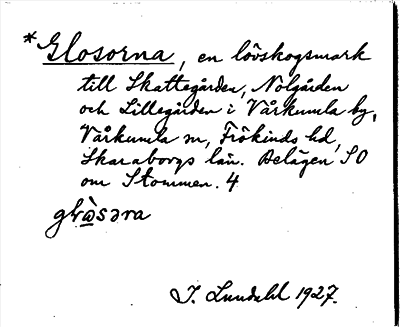 *Glosorna, en lövskogsmark
till Skattegården, Nolgården
och Lillegården i Vårkumla by,
Vårkumla sn, Frökinds hd,
Skaraborgs län. Belägen SO
om Stommen. 4
I. Lundahl 1927.